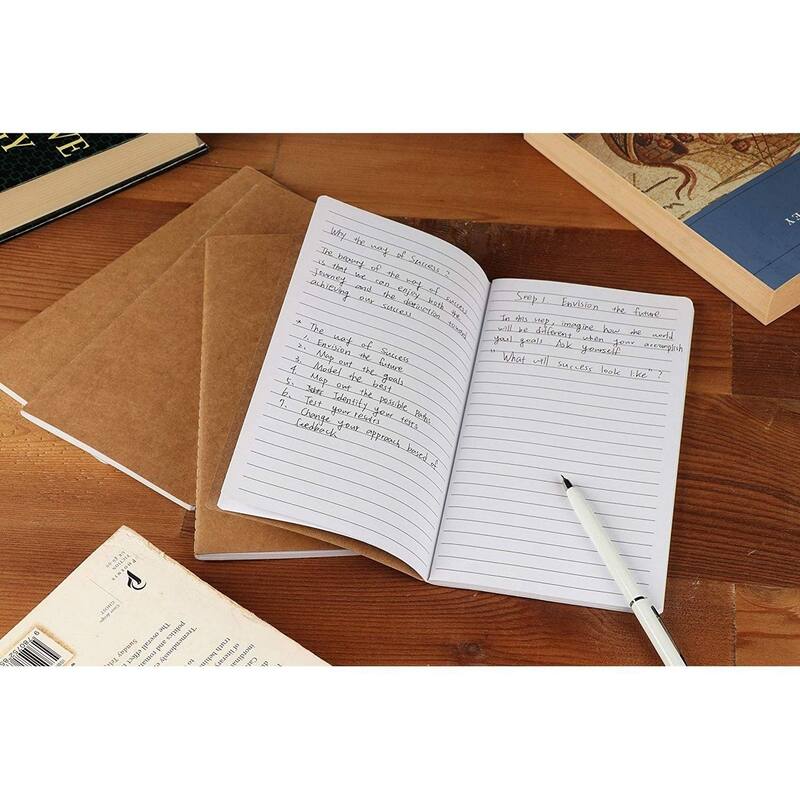 VE
Y
EY
Why the way of Success?
The beauty of the way of success
is that we can enjoy both the
journey and the destination towards
achieving our success
* The way of Success
1. Envision the future
2. Map out the goals
3. Model the best
4. Map out the possible paths
5. Identify your tests
6. Test your
7. Change your approach based of
feedback
Step 1. Envision the future
In this step, imagine how the world
will be different when your accomplish
your goals Ask yourself
"What will success look like"?
FICTION
GHOST
Tremendously
politics and
The overall effect
Sunday
of literary
truth behind